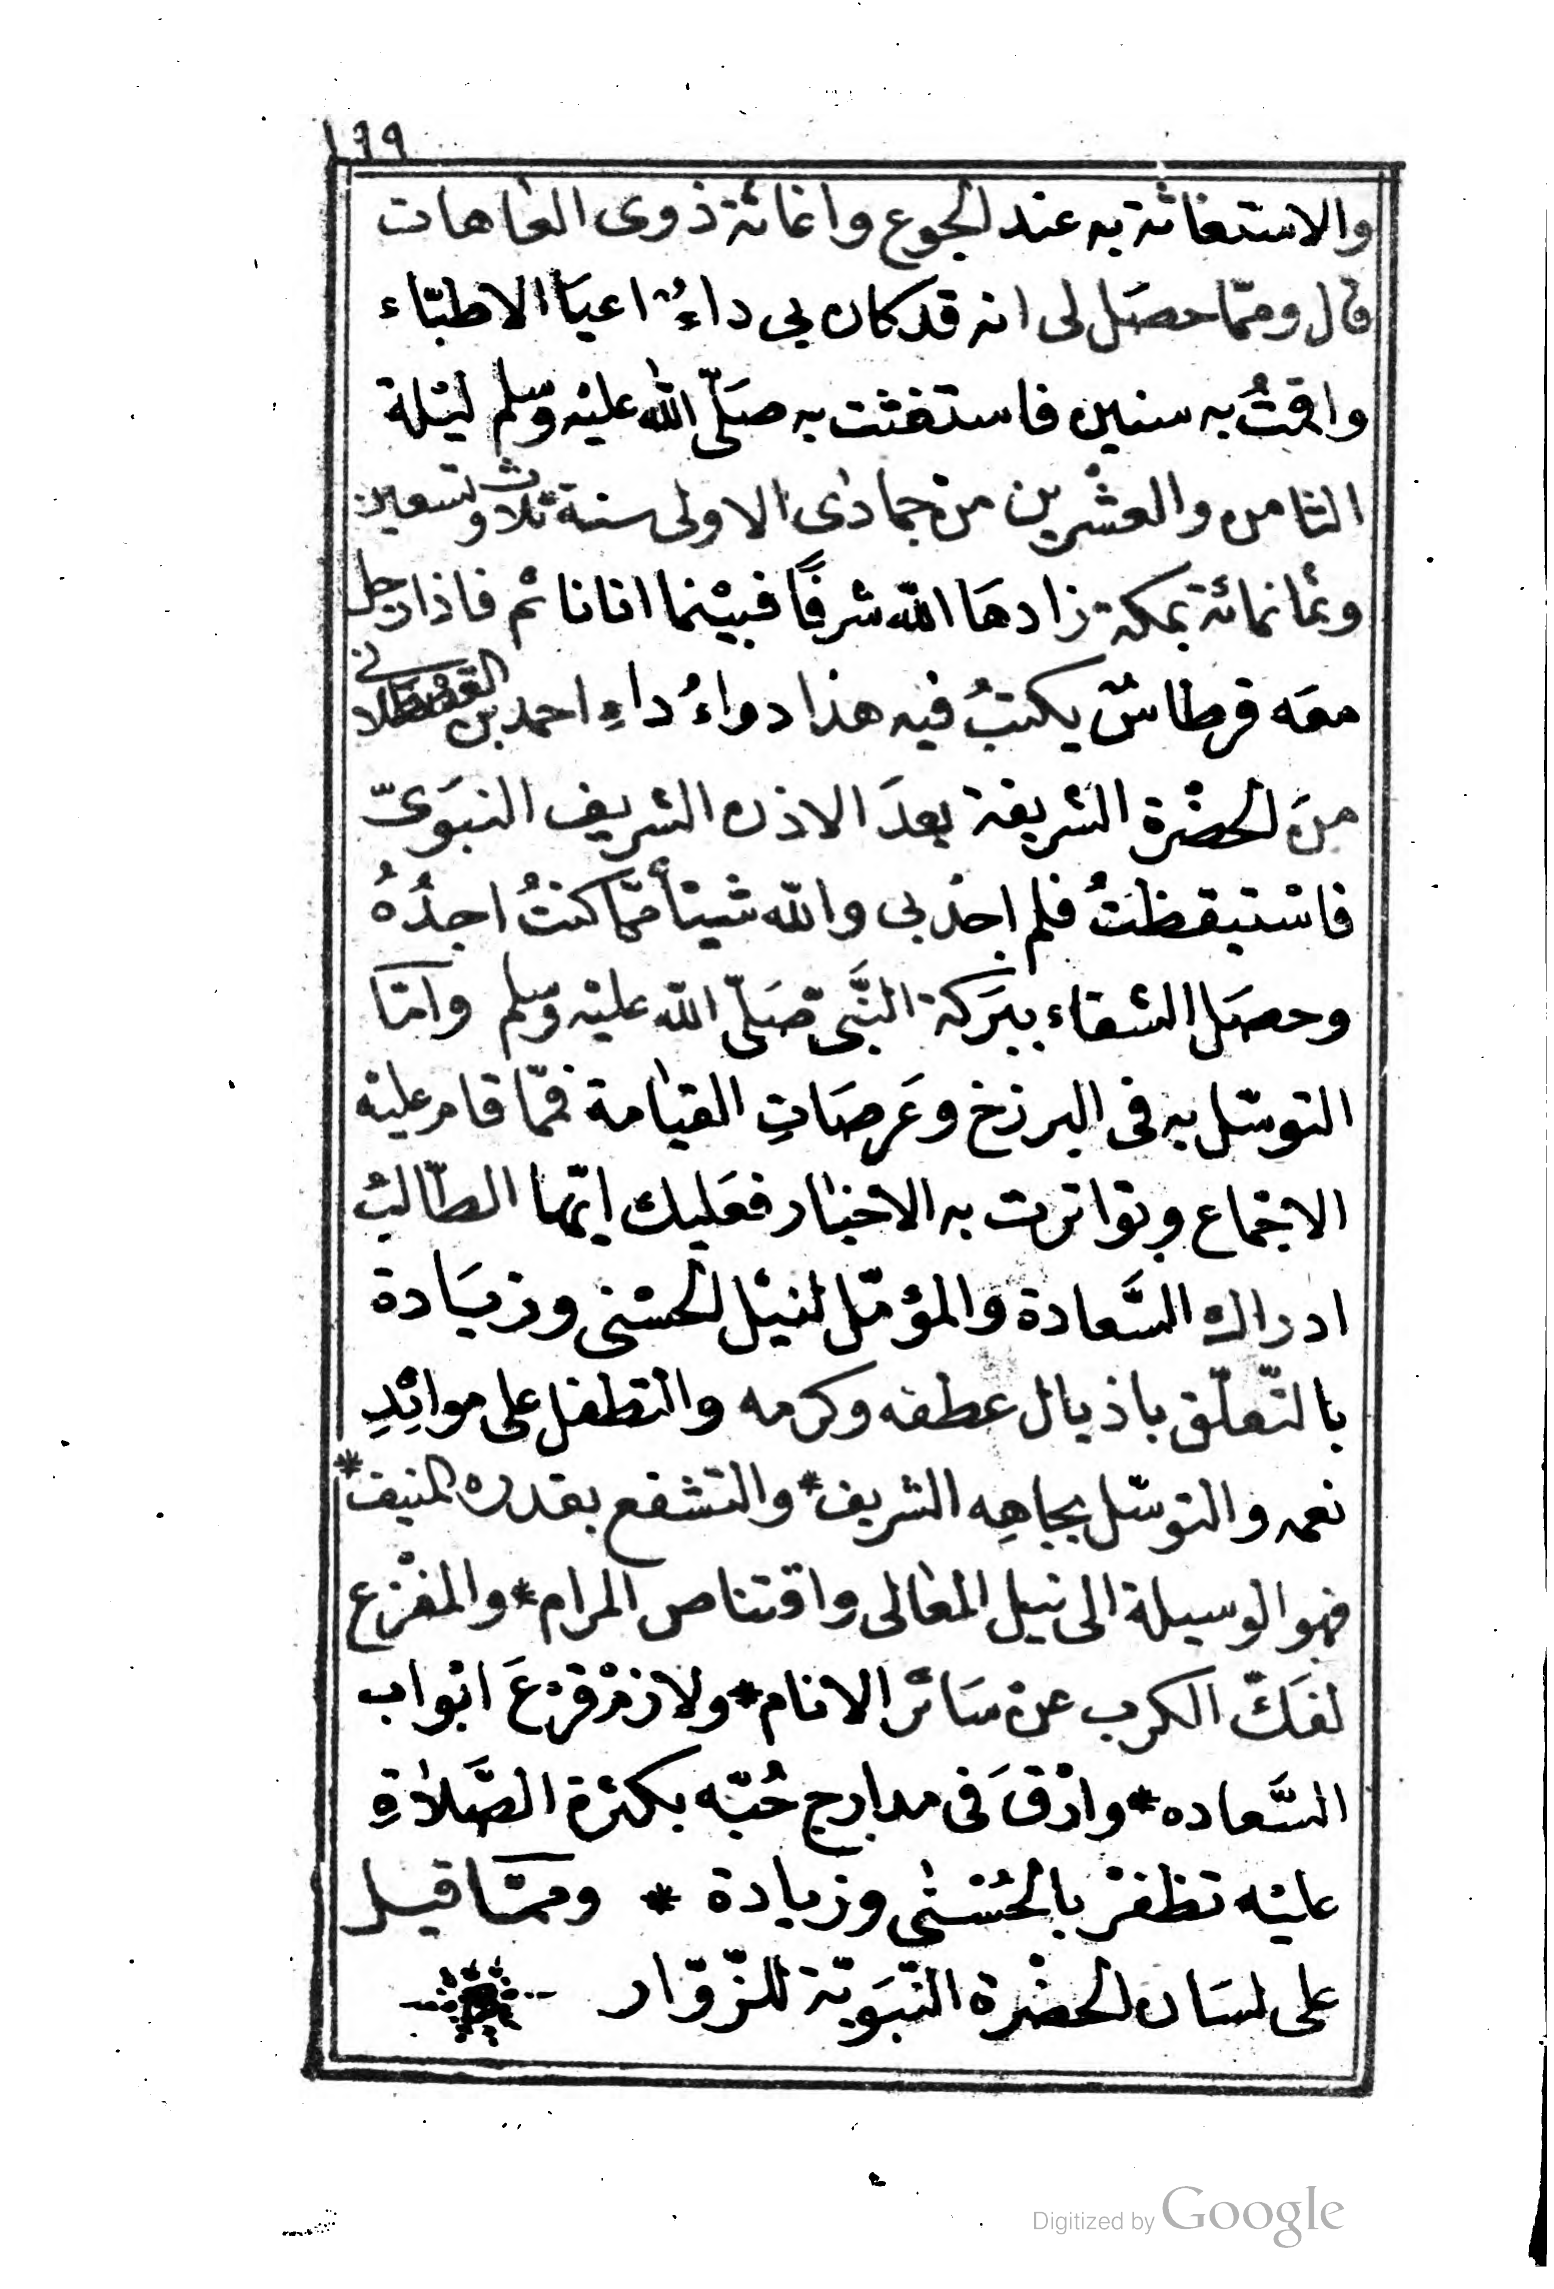 ١٩٩
والاستغاثة به عند الجوع واغاثة ذوى العاهات
قال ومما حصل لى انه قد كان بي داءٌ اعيا الاطبّاء
واقمتُ به سنين فاستغثت به صلّى الله عليه وسلم ليلة
الثامن والعشرين من جمادى الاولى سنة ثلاث وتسعين
وثمانمائة بمكة زادها الله شرفًا فبينما انا نائم فاذا رجل
معه قرطاسٌ يكتبُ فيه هذا دواءُ داءِ احمد بن القسطلانى
منَ الحضرة الشريفة بعدَ الاذن الشريف النبوىّ
فاستيقظتُ فلم اجد بى والله شيئاً ممّا كنتُ اجدُهُ
وحصل الشفاء ببركة النّبىّ صلّى الله عليه وسلم وامّا
التوسّل به فى البرزخ وعَرصَاتِ القيامة فممّا قام عليه
الاجماع وتواترت به الاخبار فعليك ايّها الطّالبُ
ادراك السَّعادة والمؤمّل لنيل الحسنى وزيَادة
بالتّعلّق باذيال عطفه وكرمه والتطفل على موائِدِ
نعمه والتوسّل بجاهِه الشريف* والتشفع بقدره المنيف*
فهو الوسيلة الى نيل المعالى واقتناص المرام* والمفزع
لفكّ الكرب عن سَائر الانام* ولازمْ قرْعَ ابْواب
السَّعاده* وارْقَ فى مدارج حُبّه بكثرة الصَّلاةِ
عليه تظفرْ بالحُسنى وزيادة * وممّا قيل
على لسَان الحضْرة النّبَويّة للزّوّار
Digitized by Google